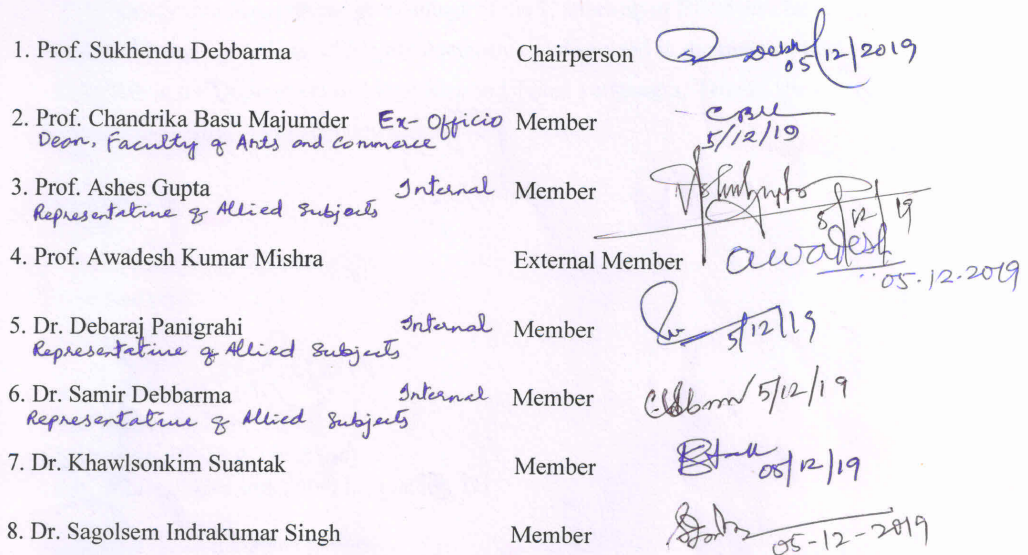 1. Prof. Sukhendu Debbarma Chairperson 05/12/2019
2. Prof. Chandrika Basu Majumder Ex-Officio Member CBM
Dean, Faculty of Arts and Commerce 5/12/19
3. Prof. Ashes Gupta Internal Member
Representative of Allied Subjects 5/12/19
4. Prof. Awadesh Kumar Mishra External Member awadesh
05.12.2019
5. Dr. Debaraj Panigrahi Internal Member 5/12/19
Representative of Allied Subjects
6. Dr. Samir Debbarma Internal Member 5/12/19
Representative of Allied Subjects
7. Dr. Khawlsonkim Suantak Member 05/12/19
8. Dr. Sagolsem Indrakumar Singh Member 05-12-2019